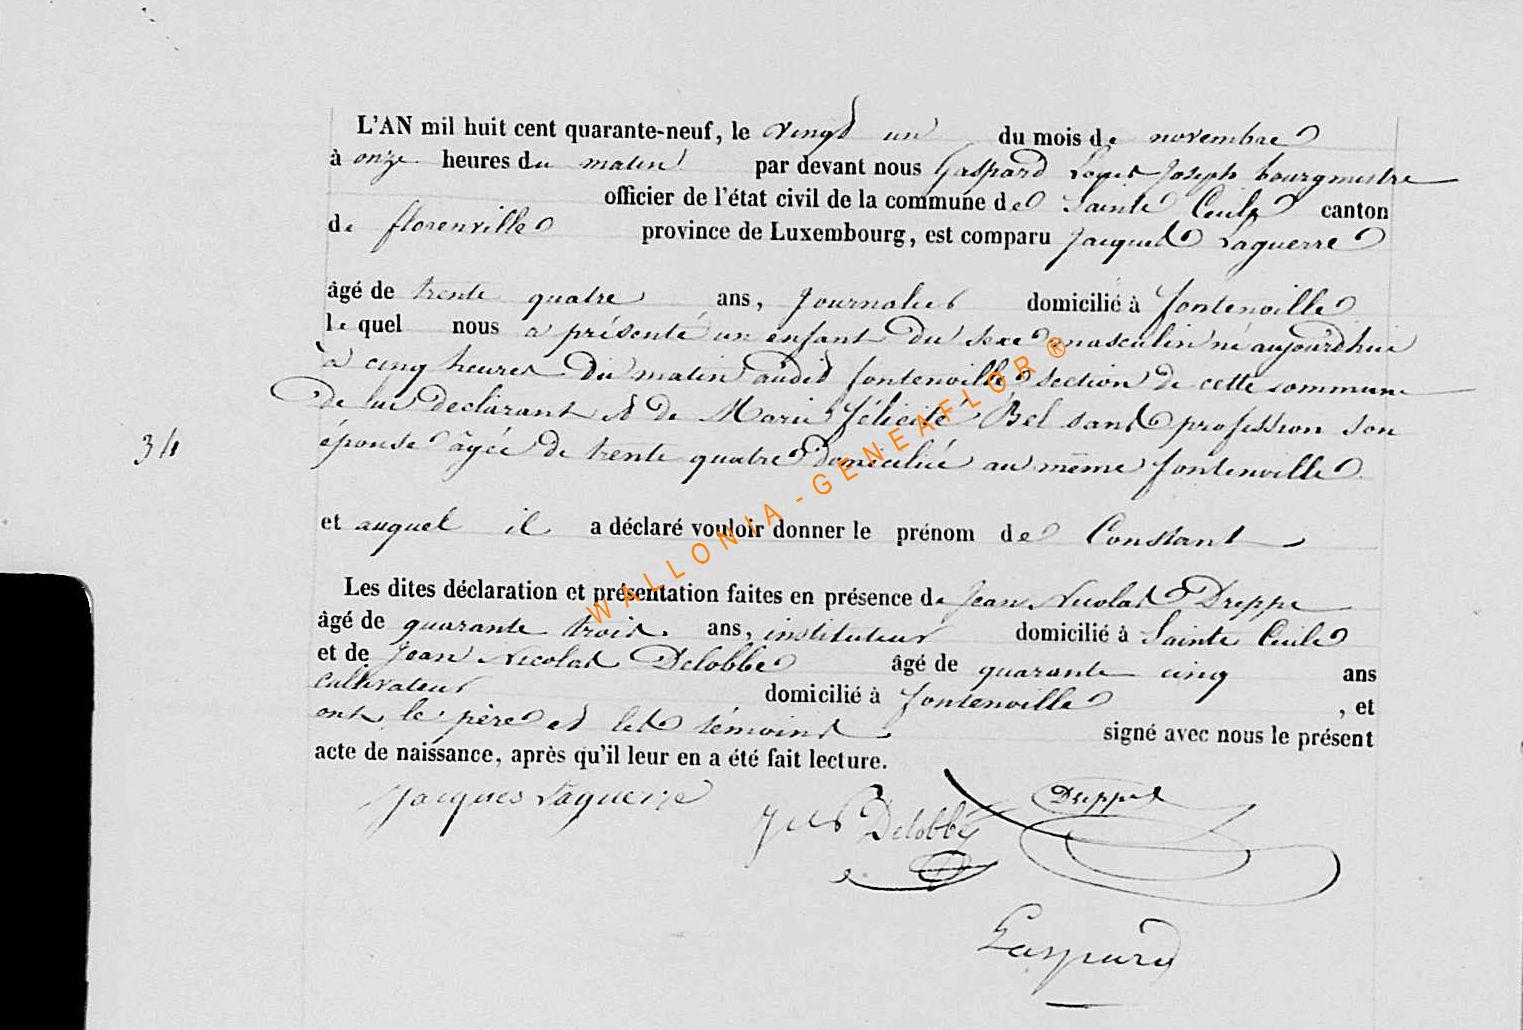 L'AN mil huit cent quarante-neuf, le vingt un du mois de novembre
à onze heures du matin par devant nous Gaspard Louis Joseph bourgmestre
officier de l'état civil de la commune de Sainte Cecile canton
de florenville province de Luxembourg, est comparu Jacques Laguerre
âgé de trente quatre ans, Journalier domicilié à fontenoille
le quel nous a présenté un enfant du sexe masculin né aujourd'hui
à cinq heures du matin audit fontenoille section de cette commune
34
de lui déclarant et de Marie félicité Bel sans profession son
épouse âgée de trente quatre domiciliée au même fontenoille
et auquel il a déclaré vouloir donner le prénom de Constant
Les dites déclaration et présentation faites en présence de Jean Nicolas Dreppe
âgé de quarante trois ans, instituteur domicilié à Sainte Cecile
et de Jean Nicolas Delobbe âgé de quarante cinq ans
cultivateur domicilié à fontenoille, et
ont le père et les témoins signé avec nous le présent
acte de naissance, après qu'il leur en a été fait lecture.
Jacques Laguerre
Delobbe
Dreppe
Gaspard
WALLONIA-GENEAFLOR ®